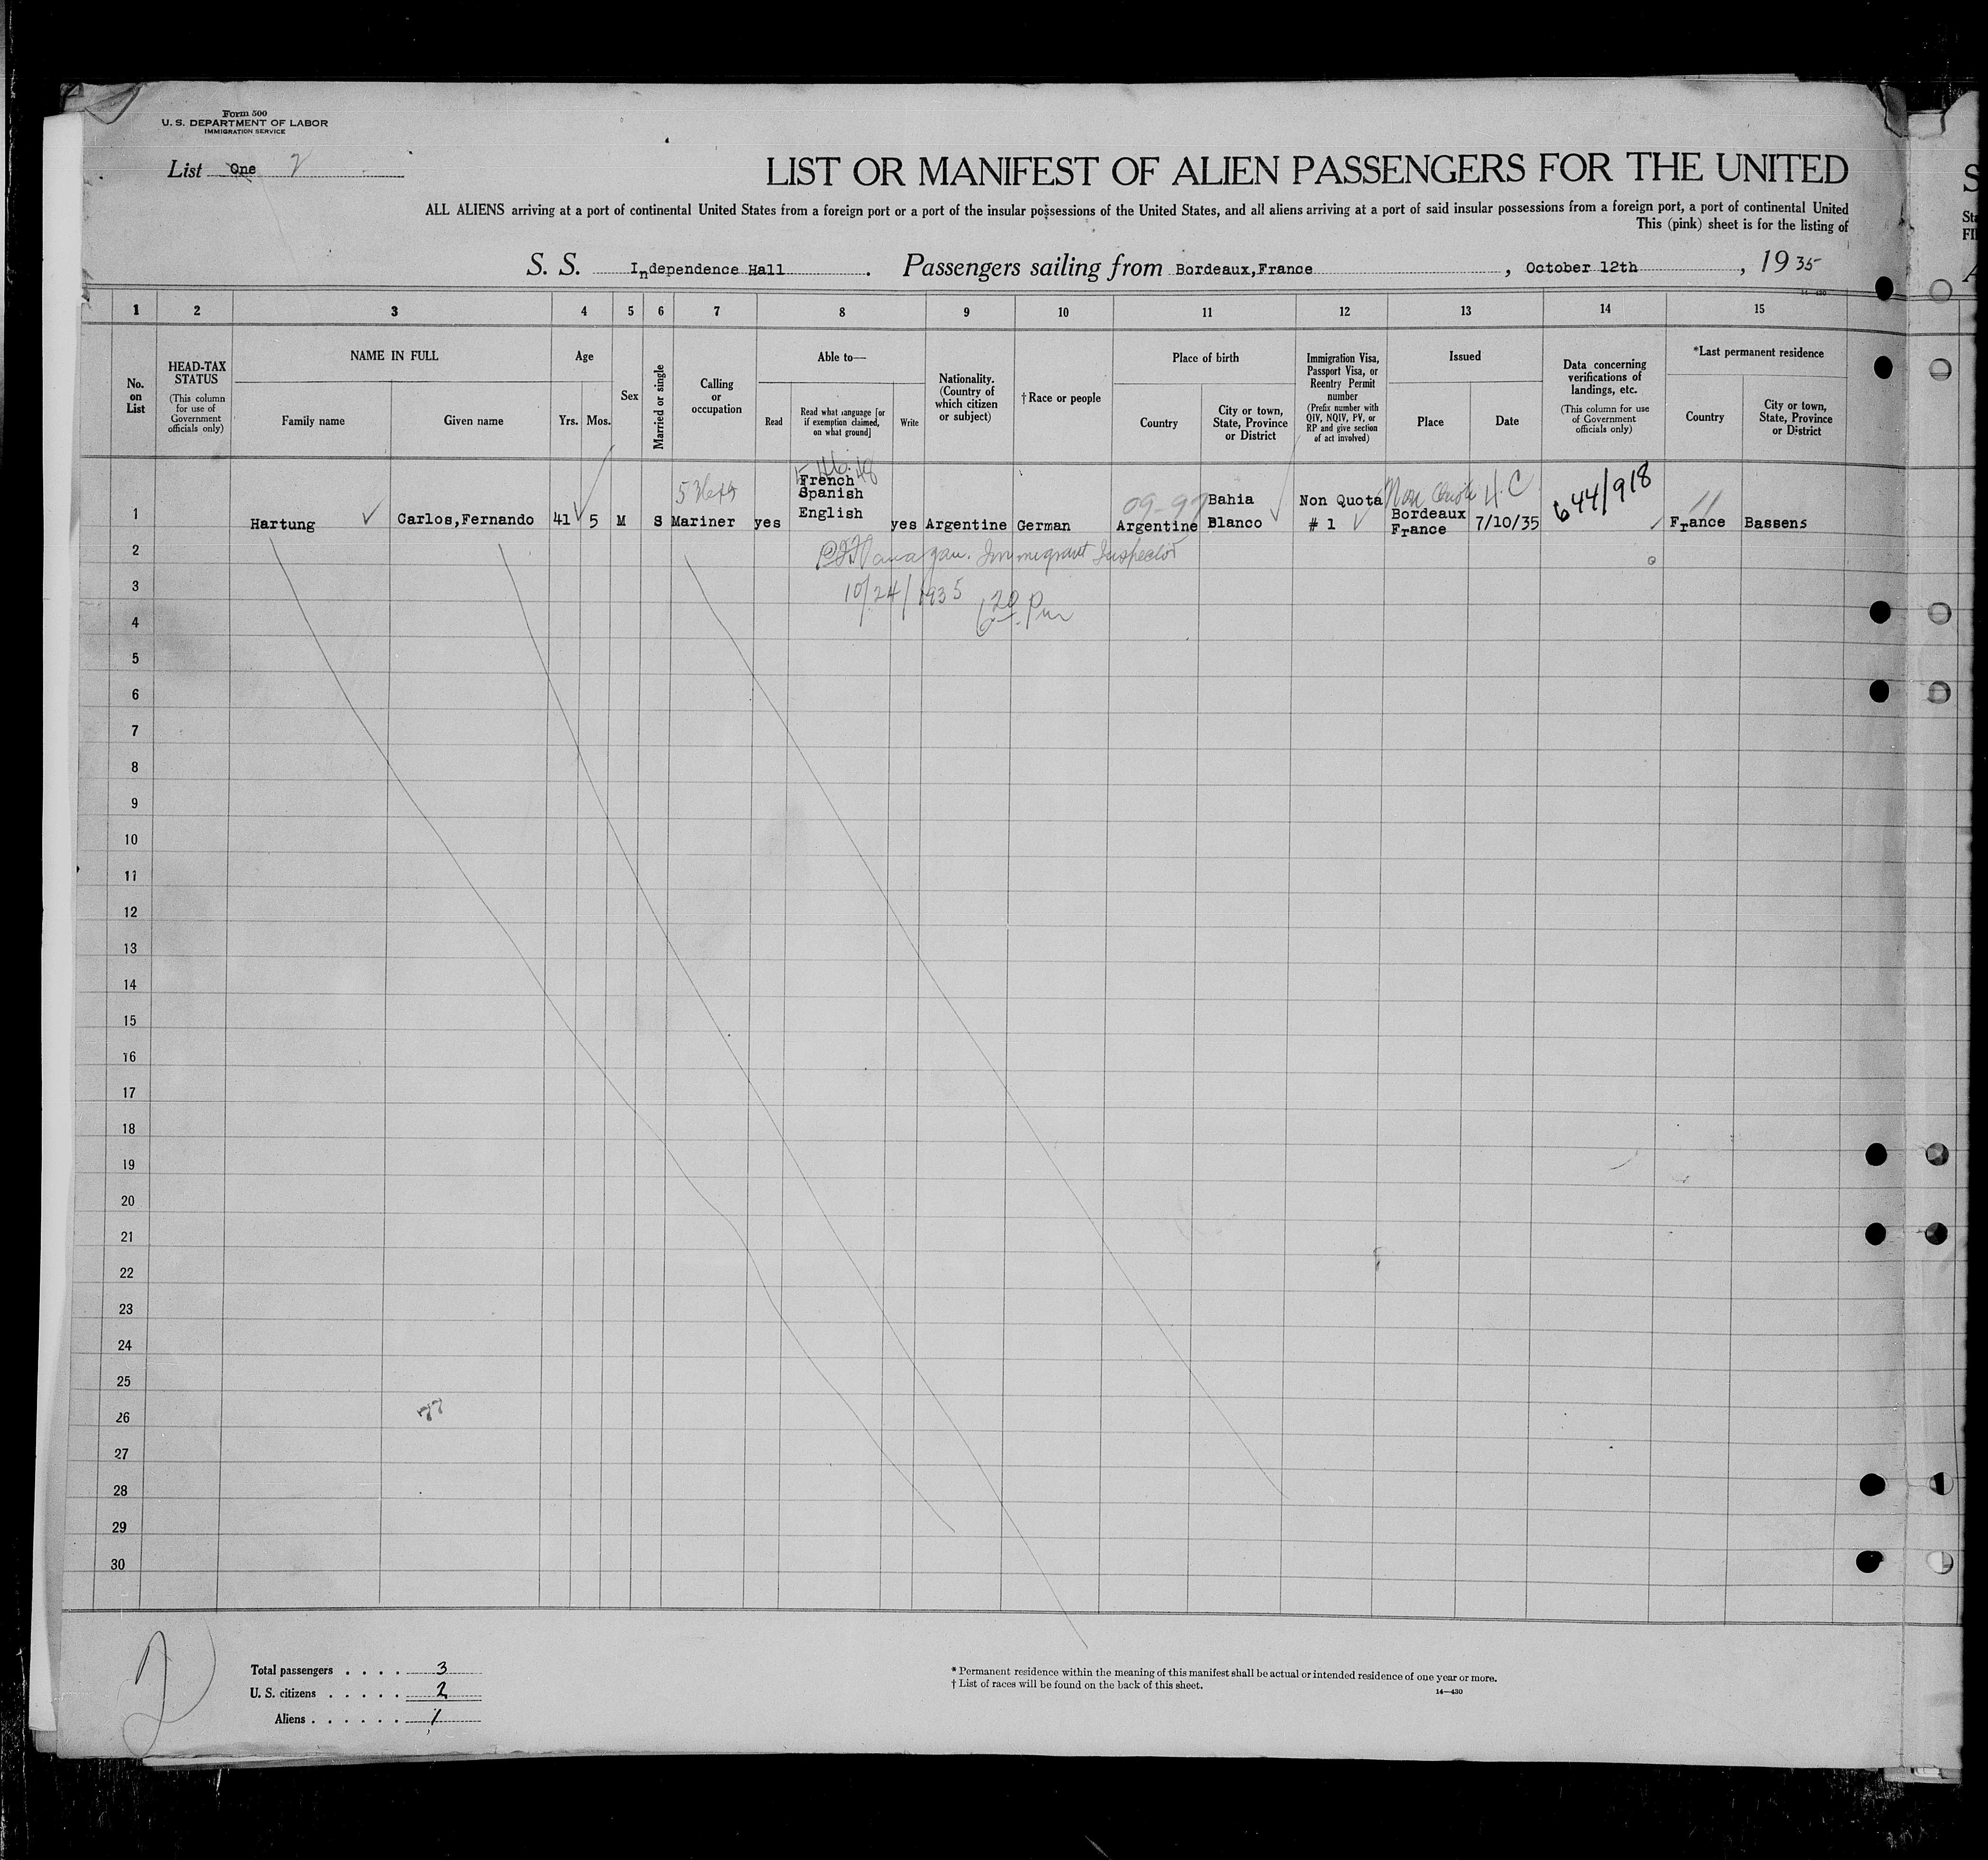 Form 500
U. S. DEPARTMENT OF LABOR
IMMIGRATION SERVICE
List One 2
LIST OR MANIFEST OF ALIEN PASSENGERS FOR THE UNITED
ALL ALIENS arriving at a port of continental United States from a foreign port or a port of the insular possessions of the United States, and all aliens arriving at a port of said insular possessions from a foreign port, a port of continental United
This (pink) sheet is for the listing of
S. S. Independence Hall . Passengers sailing from Bordeaux,France , October 12th , 1935
1 2 3 4 5 6 7 8 9 10 11 12 13 14 15
No. on List
HEAD-TAX STATUS
(This column for use of Government officials only)
NAME IN FULL
Family name
Given name
Age
Yrs. Mos.
Sex
Married or single
Calling or occupation
Able to—
Read
Read what language [or if exemption claimed, on what ground]
Write
Nationality. (Country of which citizen or subject)
†Race or people
Place of birth
Country
City or town, State, Province or District
Immigration Visa, Passport Visa, or Reentry Permit number
(Prefix number with QIV, NQIV, PV, or RP and give section of act involved)
Issued
Place
Date
Data concerning verifications of landings, etc.
(This column for use of Government officials only)
*Last permanent residence
Country
City or town, State, Province or District
1 Hartung Carlos,Fernando 41 5 M S Mariner yes French Spanish English yes Argentine German Argentine Bahia Blanco Non Quota # 1 Bordeaux France 7/10/35 644/918 France Bassens
09-97
Non Quota
2 Immigrant Inspector
3 10/24/1935
4 6 20 Pm
5
6
7
8
9
10
11
12
13
14
15
16
17
18
19
20
21
22
23
24
25
26
27
28
29
30
2
Total passengers . . . . 3
U. S. citizens . . . . . 2
Aliens . . . . . . 1
* Permanent residence within the meaning of this manifest shall be actual or intended residence of one year or more.
† List of races will be found on the back of this sheet.
14—430